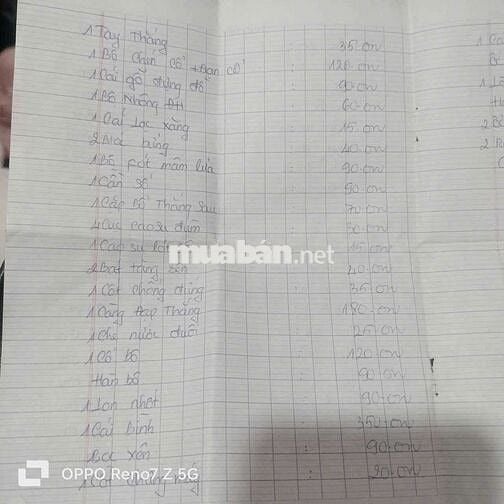 1 Tay Thắng : 35.on
1 Bộ Chén Cổ + Đạn cổ : 120.on
1 Cái gỗ đựng đồ : 90.on
1 Bộ Nhông ĐH : 60.on
1 Cái Lọc xăng : 15.on
2 : 40.on
1 Bộ mâm lửa : 90.on
1 Cần số : 90.on
1 Cặp Bố Thắng Sau : 70.on
4 Cục cao su đùm : 30.on
1 Cao su : 15.on
2 Bạt tăng sên : 40.on
1 Cốt chống đứng : 35.on
1 Càng đạp Thắng : 180.on
1 Chế nước đuôi : 25.on
1 Cổ bô : 120.on
Hàn bô : 90.on
1 Lon nhớt : 90.on
1 Cái Bình : 350.on
xên : 90.on
1 Cốt : 20.on
1 Ca
1
2
2
muaban.net
OPPO Reno7 Z 5G